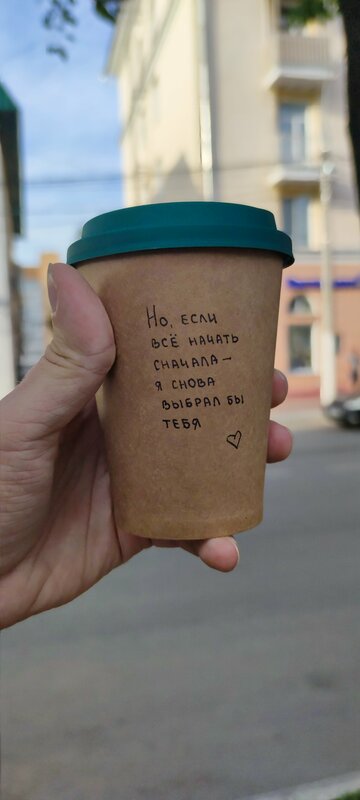 Но, если
всё начать
сначала –
я снова
выбрал бы
тебя